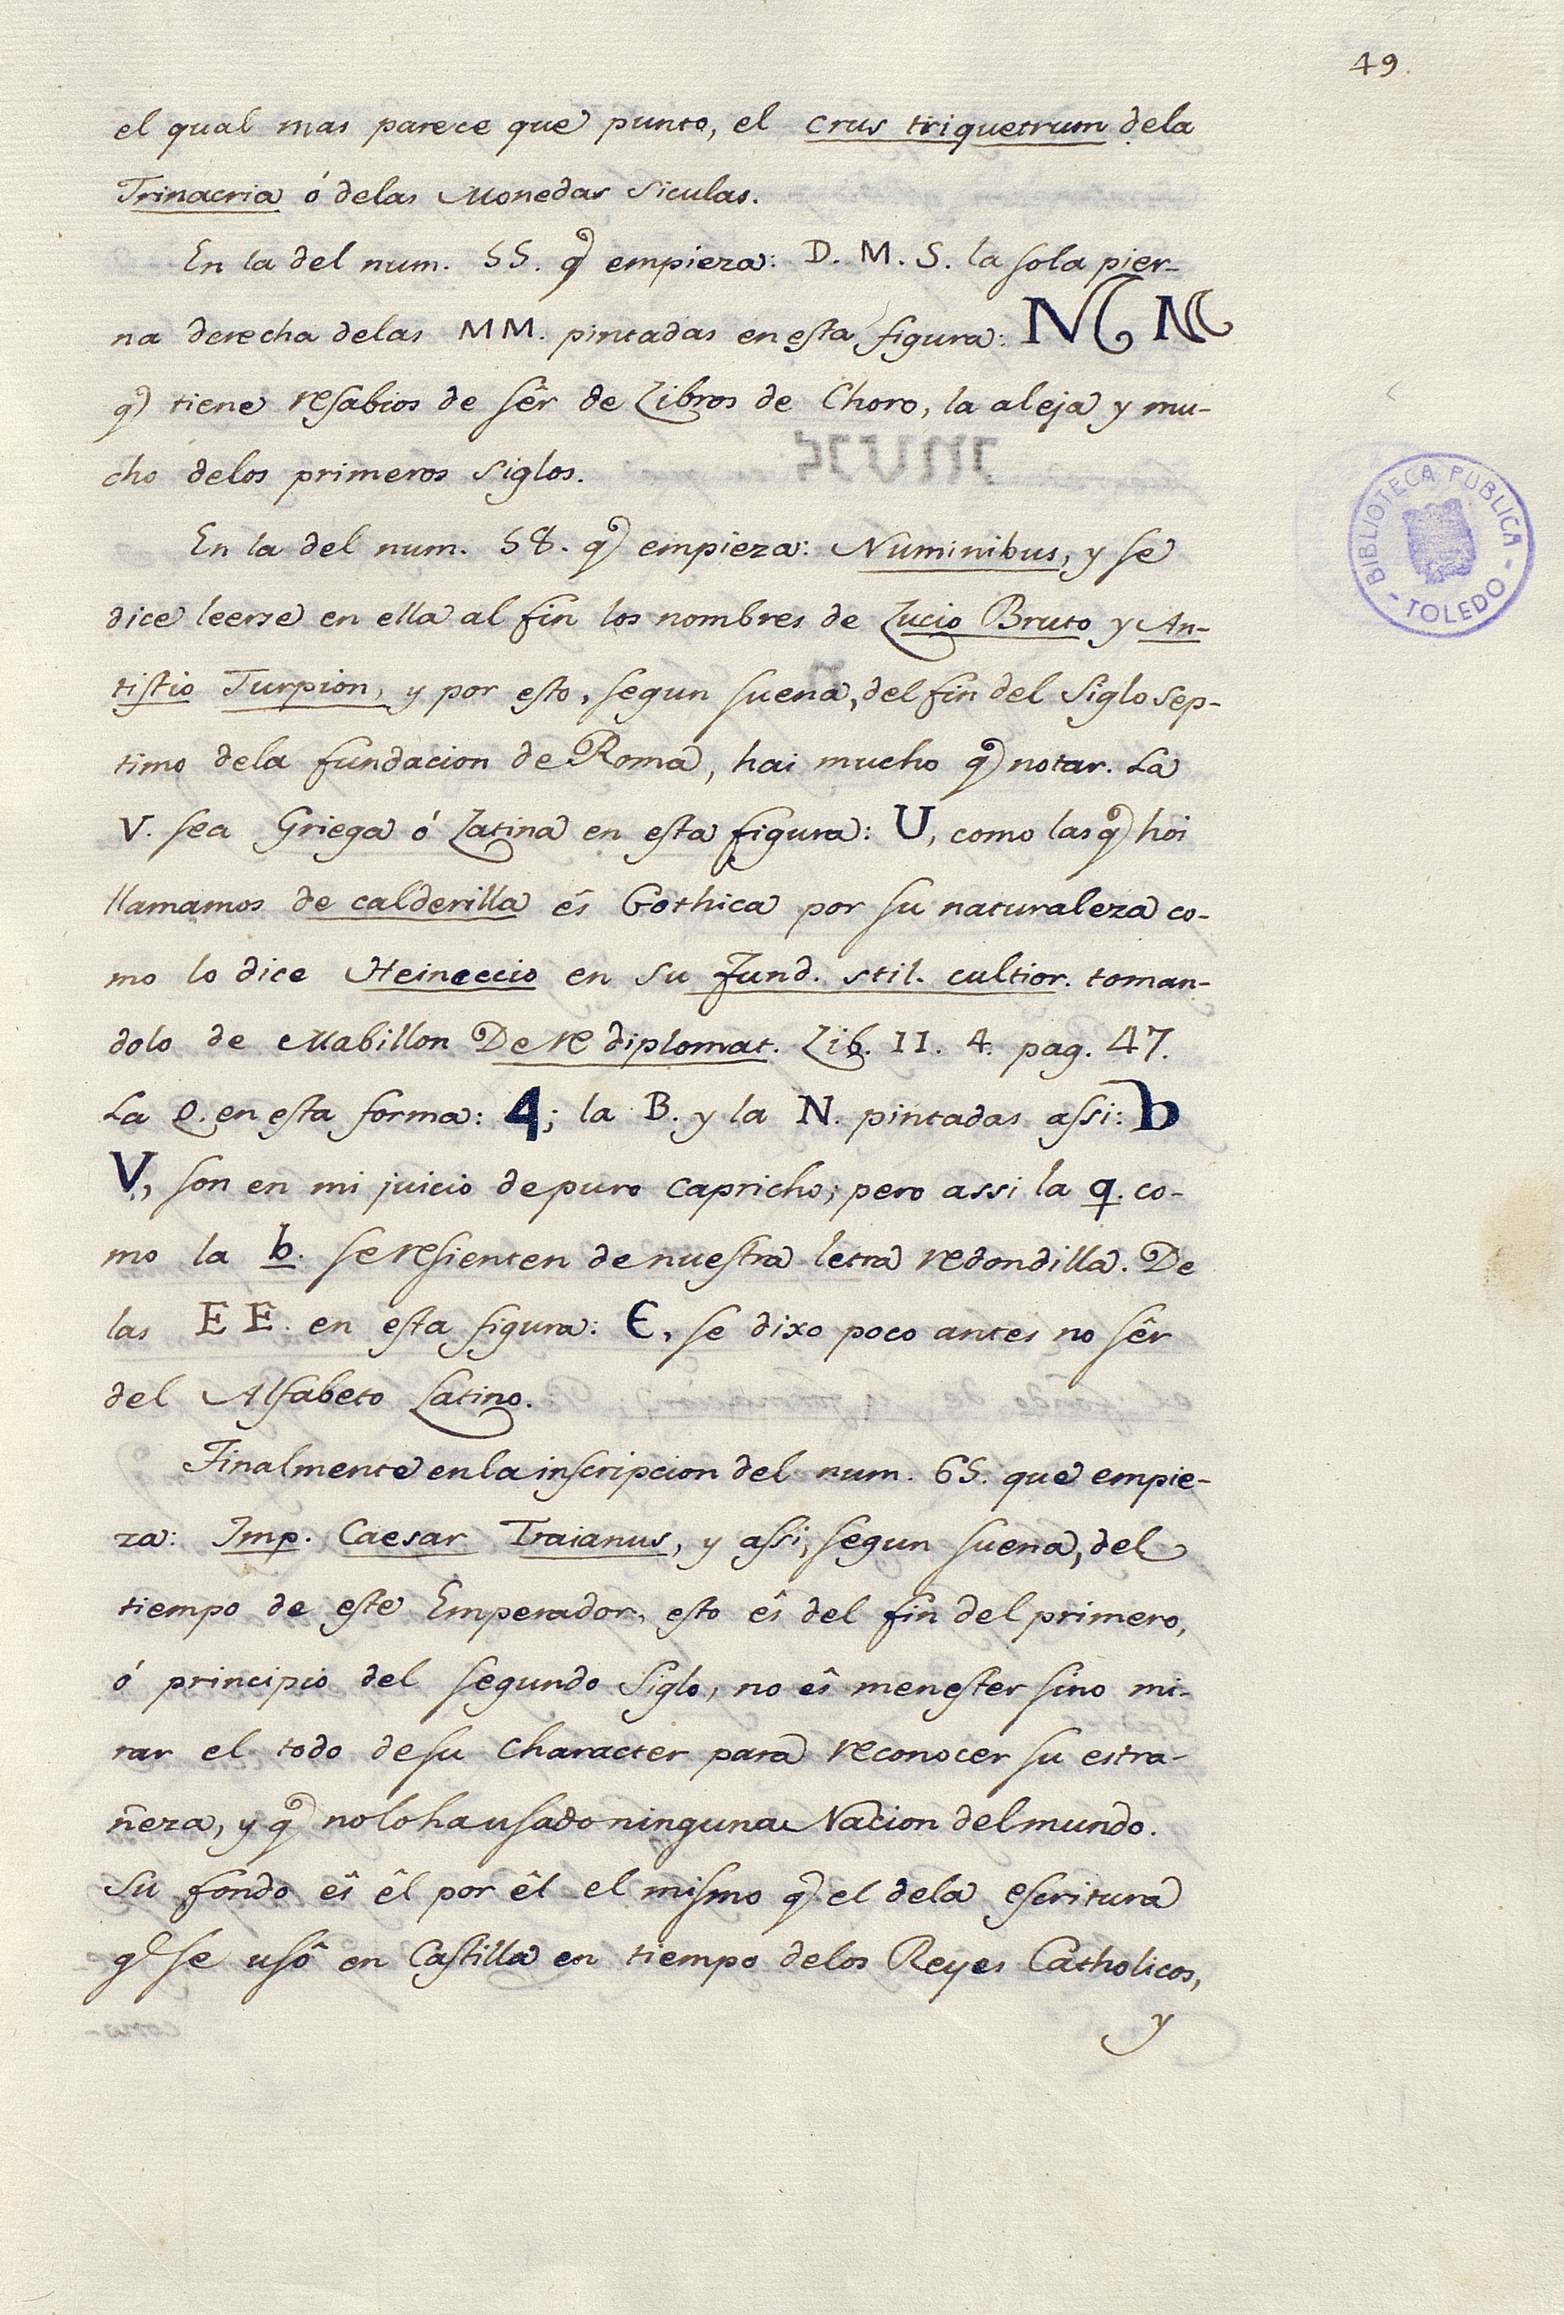 49.
el qual mas parece que punto, el crus triquetrum dela
Trinacria ó delas Monedas Siculas.
En la del num. 55. q) empieza: D. M. S. la sola pier-
na derecha delas MM. pintadas en esta figura: M M
q) tiene resabios de sêr de Libros de Choro, la aleja y mu-
cho delos primeros siglos.
En la del num. 58. q) empieza: Numinibus, y se
dice leerse en ella al fin los nombres de Lucio Bruto y An-
tistio Turpion, y por esto, segun suena, del fin del Siglo sep-
timo dela fundacion de Roma, hai mucho q) notar. La
V. sea Griega ó Latina en esta figura: U, como las q) hoi
llamamos de calderilla és Gothica por su naturaleza co-
mo lo dice Heineccio en su Fund. stil. cultior. toman-
dolo de Mabillon De re diplomat. Lib. II. 4. pag. 47.
La Q. en esta forma: 4; la B. y la N. pintadas assi: b
V, son en mi juicio de puro capricho; pero assi la q. co-
mo la b. se resienten de nuestra letra redondilla. De
las EE. en esta figura: Є, se dixo poco antes no sêr
del Alfabeto Latino.
Finalmente en la inscripcion del num. 65. que empie-
za: Imp. Caesar Traianus, y assi, segun suena, del
tiempo de este Emperador, esto ês del fin del primero,
ó principio del segundo Siglo, no ês menester sino mi-
rar el todo de su character para reconocer su estra-
ñeza, y q) no lo ha usado ninguna Nacion del mundo.
Su fondo ês êl por êl el mismo q) el dela escritura
q) se usô en Castilla en tiempo delos Reyes Catholicos,
y
BIBLIOTECA PUBLICA
- TOLEDO -